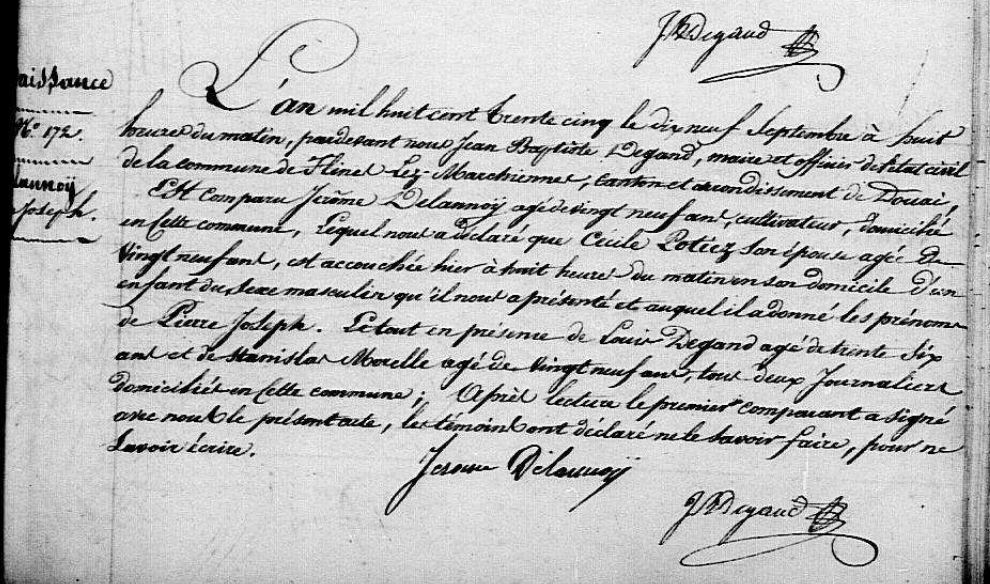 JB Degand
aissance
N.° 172.
lannoÿ
Joseph.
L'an mil huit cent trente cinq le dix neuf Septembre à huit
heures du matin, pardevant nous Jean Baptiste Degand, maire et officier de l'état civil
de la commune de Flines-Lez-Marchiennes, canton et arrondissement de Douai,
Est comparu Jérôme Delannoÿ agé de vingt neuf ans, cultivateur, domicilié
en cette commune, Lequel nous a déclaré que Cécile Potiez son épouse agée de
vingt neuf ans, est accouchée hier à huit heures du matin en son domicile d'un
enfant du sexe masculin qu'il nous a présenté et auquel il a donné les prénoms
de Pierre Joseph. Le tout en présence de Louis Degand agé de trente six
ans et de Stanislas Morelle agé de vingt neuf ans, tous deux Journaliers
domiciliés en cette commune; Après lecture le premier comparant a signé
avec nous le présent acte, les témoins ont déclaré ne le savoir faire, pour ne
Savoir écrire.
Jerome Delannoÿ
JB Degand